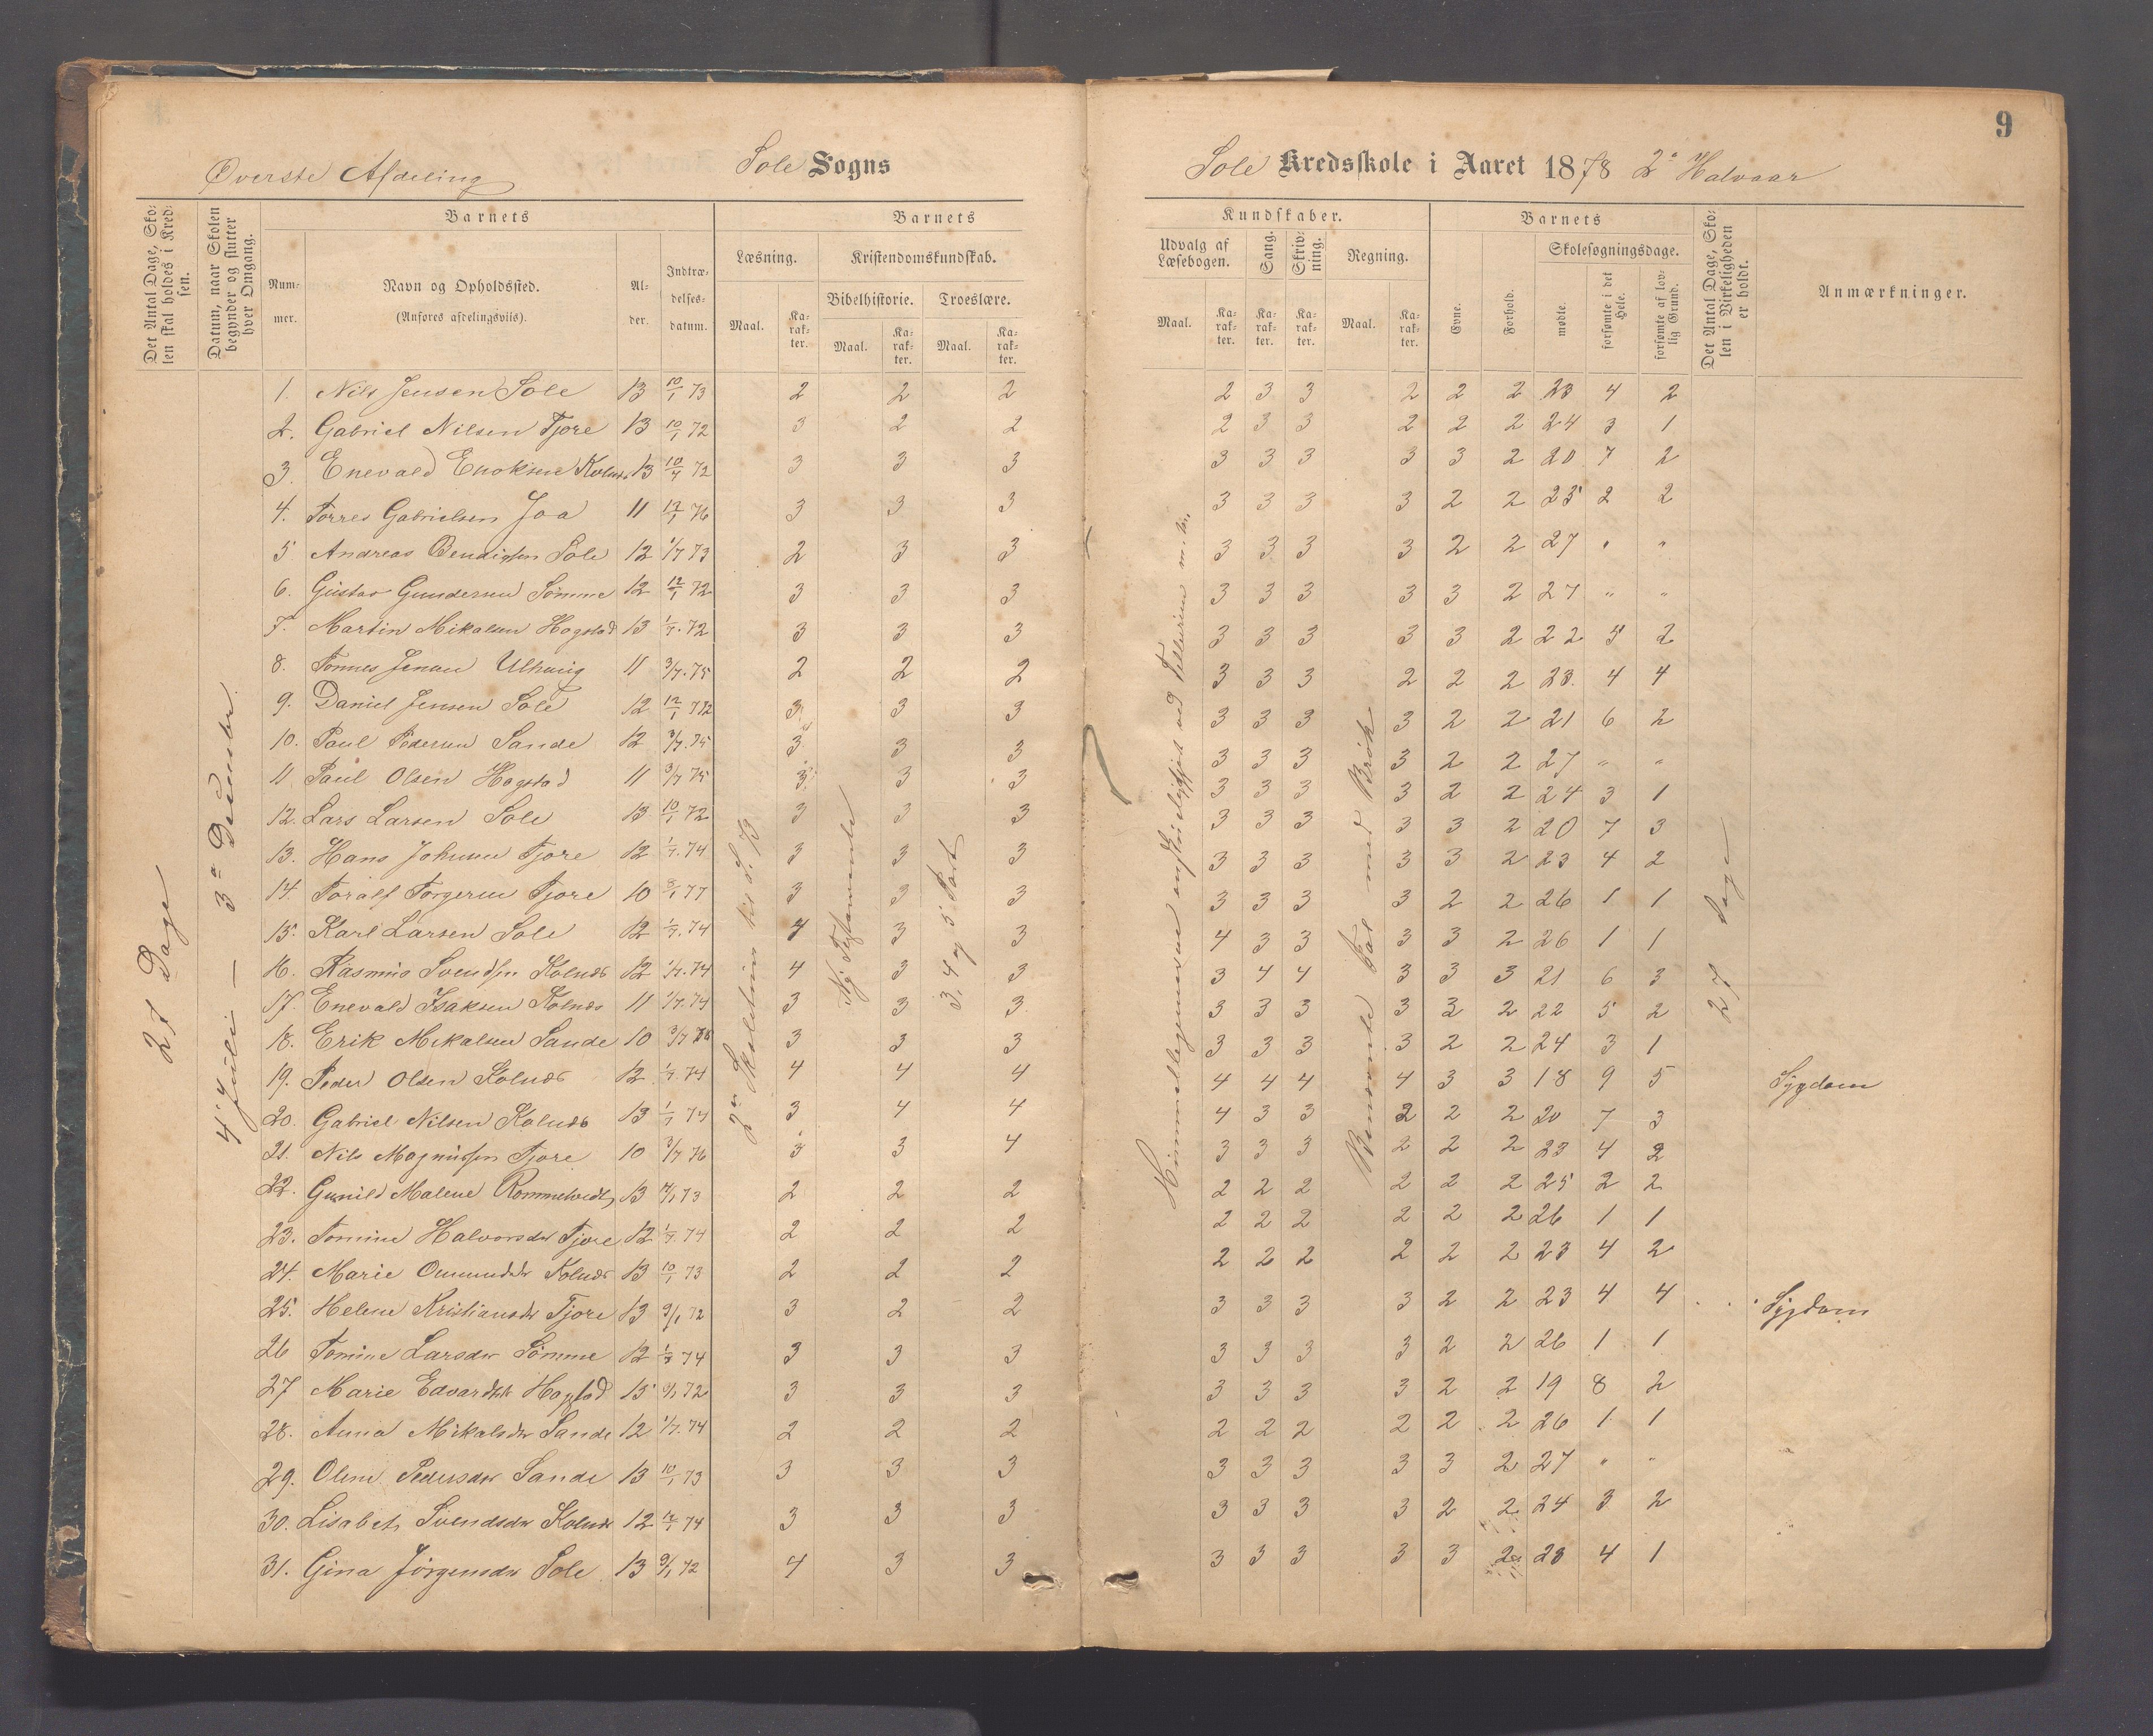 9
Øverste Afdeling
Sole Sogns
Sole Kredsskole i Aaret 1878 2° Halvaar
Det Antal Dage, Skolen skal holdes i Kredsen.
Datum, naar Skolen begynder og slutter hver Omgang.
Barnets
Barnets
Kundskaber.
Barnets
Det Antal Dage, Skolen i Virkeligheden er holdt.
Anmærkninger.
Nummer.
Navn og Opholdssted.
(Anføres afdelingsviis).
Alder.
Indtrædelsesdatum.
Læsning.
Kristendomskundskab.
Bibelhistorie.
Troeslære.
Maal. Karakter. Maal. Karakter. Maal. Karakter.
Udvalg af Læsebogen.
Sang.
Skrivning.
Regning.
Maal. Karakter. Karakter. Karakter. Maal. Karakter.
Evne.
Forhold.
Skolesøgningsdage.
mødte.
forsømte i det Hele.
forsømte af lovlig Grund.
27 Dage
4 Juli — 3° December
3, 4 og 5 Part
27 Dage
1. Nils Jensen Sole 13 10/1 73 2 2 2 2 3 3 2 2 2 23 4 2
2. Gabriel Nilsen Tjore 13 10/1 72 3 2 2 2 3 3 2 2 2 24 3 1
3. Enevald Enoksen Kolnes 13 10/7 72 3 3 3 3 3 3 3 3 2 20 7 2
4. Torres Gabrielsen Joa 11 12/1 76 3 3 3 3 3 3 3 2 2 25 2 2
5 Andreas Bendigtsen Sole 12 1/7 73 2 3 3 3 3 3 3 2 2 27 " "
6. Gustav Gundersen Sømme 12 12/1 72 3 3 3 3 3 3 3 3 2 27 " "
7. Martin Mikalsen Hogstad 13 1/7 72 3 3 3 3 3 3 3 3 2 22 5 2
8. Tønnes Jensen Ulhaug 11 3/7 75 2 2 2 3 3 3 2 2 2 23 4 4
9. Daniel Jensen Sole 12 12/1 72 3 3 3 3 3 3 3 2 2 21 6 2
10. Paul Pedersen Sande 12 3/7 75 3 3 3 3 3 3 3 2 2 27 " "
11 Paul Olsen Hogstad 11 3/7 75 3 3 3 3 3 3 3 2 2 24 3 1
12. Lars Larsen Sole 13 10/1 72 3 3 3 3 3 3 3 3 2 20 7 3
13. Hans Johnsen Tjore 12 1/7 74 3 3 3 3 3 3 3 3 2 23 4 2
14. Toralf Torgersen Tjore 10 8/1 77 3 3 3 3 3 3 3 2 2 26 1 1
15. Karl Larsen Sole 12 1/7 74 4 3 3 4 3 3 3 3 2 26 1 1
16. Rasmus Svendsen Kolnes 12 1/7 74 4 3 3 3 4 4 3 3 3 21 6 3
17. Enevald Isaksen Kolnes 11 1/7 74 3 3 3 3 3 3 3 3 2 22 5 2
18. Erik Mikalsen Sande 10 3/7 78 3 3 3 3 3 3 3 2 2 24 3 1
19. Peder Olsen Kolnes 12 1/7 74 4 4 4 4 4 4 4 3 3 18 9 5 Sygdom
20. Gabriel Nilsen Kolnes 13 1/7 74 3 4 4 4 3 3 2 2 2 20 7 3
21. Nils Magnussen Tjore 10 3/7 76 3 3 4 3 3 3 2 2 2 23 4 2
22. Gunild Malene 13 73 2 2 2 2 2 2 2 2 2 25 2 2
23. Tomine Halvorsdr Tjore 12 1/7 74 2 2 2 2 2 2 2 2 2 26 1 1
24. Marie Ommundsdr Kolnes 13 10/1 73 2 2 2 2 2 2 2 2 2 23 4 2
25. Helene Kristiansdr Tjore 13 9/1 72 3 2 2 3 3 3 3 2 2 23 4 4 Sygdom
26 Tomine Larsdr Sømme 12 1/7 74 3 3 3 3 3 3 3 2 2 26 1 1
27 Marie Edvardsdr Hogstad 15 9/1 72 3 3 3 3 3 3 3 2 2 19 8 2
28. Anna Mikalsdr Sande 12 1/7 74 2 2 2 2 2 2 2 2 2 26 1 1
29. Olene Pedersdr Sande 13 10/1 73 3 3 3 3 3 3 3 3 2 27 " "
30. Lisabeth Svendsdr Kolnes 12 12/1 74 3 3 3 3 3 3 3 2 2 24 3 2
31. Gina Jörgensdr Sole 13 9/1 72 4 3 3 3 3 3 3 3 2 23 4 1